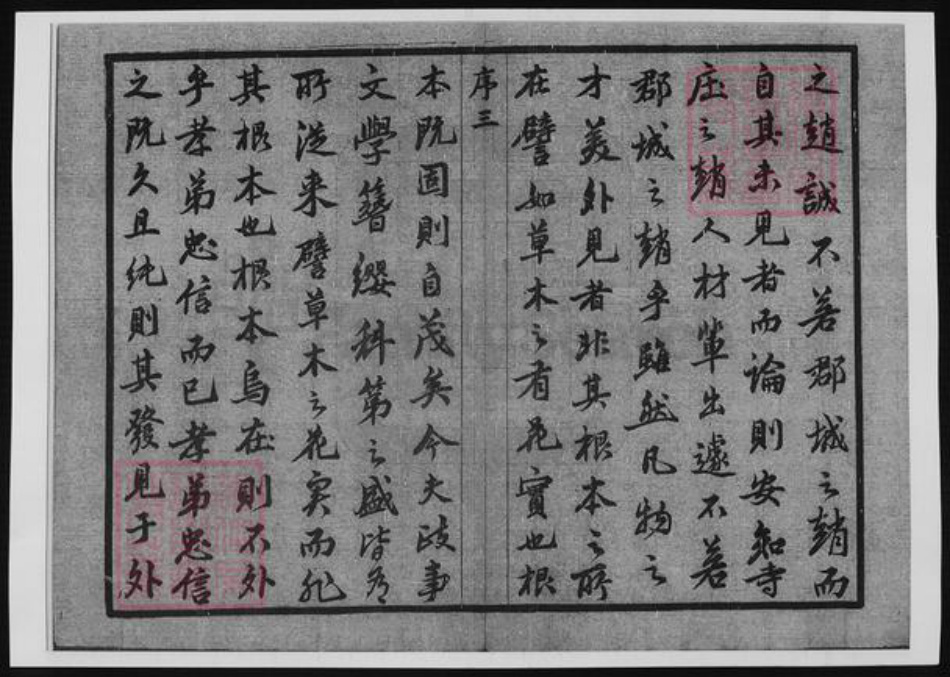 之趙誠不若郡城之趙而
自其未見者而論則安知寺
庄之趙人材輩出遽不若
郡城之趙乎雖然凡物之
才美外見者非其根本之所
在譬如草木之有花實也根
序三
本既固則自茂矣今夫政事
文學簪纓科第之盛皆有
所從来譬草木之花實而非
其根本也根本烏在則不外
乎孝弟忠信而已孝弟忠信
之既久且純則其發見于外